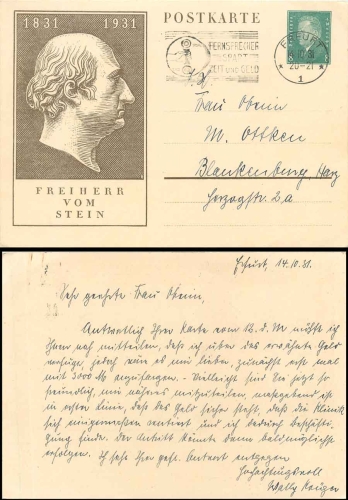 1831 1931
FREIHERR
VOM
STEIN
POSTKARTE
FERNSPRECHER
SPART
ZEIT und GELD
ERFURT
14.10.31
20-21
1
Frau Oberin
M. Ottken
Blankenburg, Harz
Herzogstr. 2a
Erfurt, 14.10.31.
Sehr geehrte Frau Oberin,
Antwortlich Ihrer Karte vom 12. d. M möchte ich
Ihnen noch mitteilen, dass ich über das erwähnte Geld
verfüge, jedoch wäre es mir lieber, zunächst erst mal
mit 3000 M anzufangen. - Vielleicht sind Sie jetzt so
freundlich, mir näheres mitzuteilen, massgebend ist
in erster Linie, dass das Geld sicher steht, dass die Klinik
sich einigermassen rentiert und ich dadurch Beschäfti-
gung finde. Der Antritt könnte dann baldmöglichst
erfolgen. Ich sehe Ihrer gefl. Antwort entgegen
Hochachtungsvoll
Wally